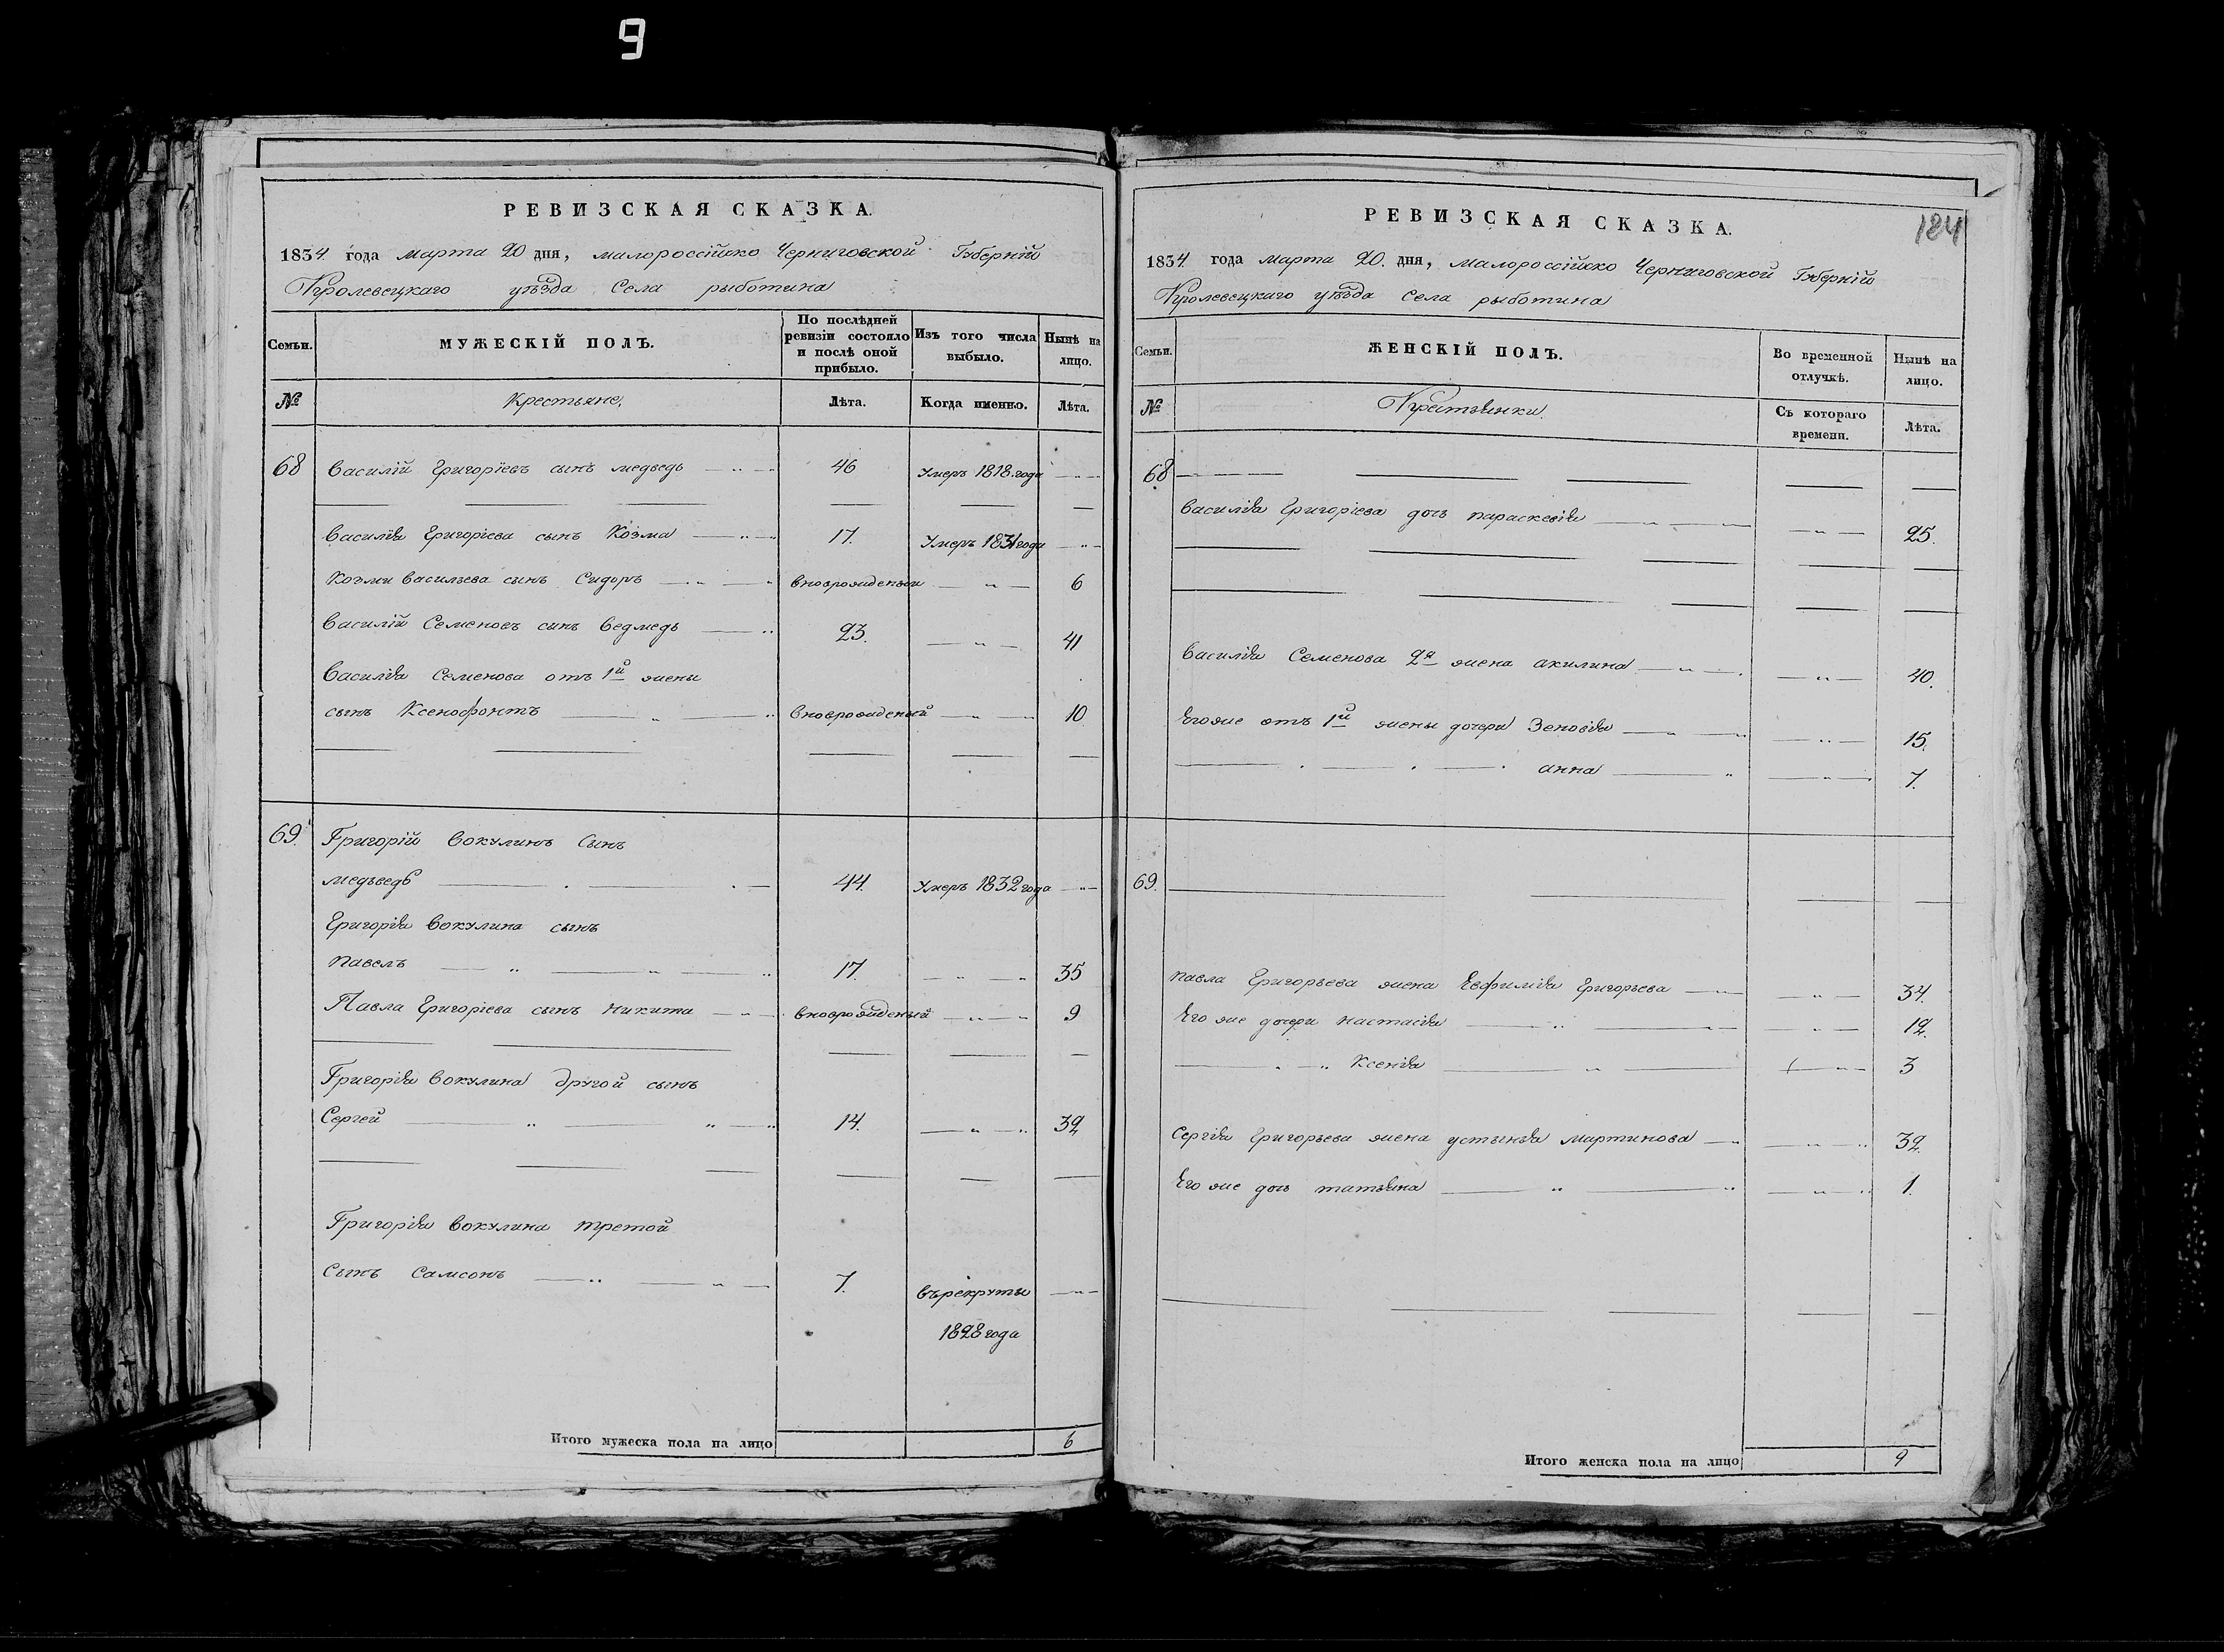 9
РЕВИЗСКАЯ СКАЗКА.
1834 года марта 20 дня, малороссійско Черниговской Губерній
Кролевецкаго уѣзда Села рыботина
Семьи. МУЖЕСКІЙ ПОЛЪ. По послѣдней ревизіи состояло и послѣ оной прибыло. Изъ того числа выбыло. Нынѣ на лицо.
№ Крестьяне, Лѣта. Когда именно. Лѣта.
68 Василій Григоріевъ сынъ медведь 46 Умеръ 1818. года
Василія Григоріева сынъ Козма 17. Умеръ 1831 года
Козми Васильева сынъ Сидоръ вноврожденый 6
Василій Семеновъ сынъ Ведмедь 23. 41
Василія Семенова отъ 1й жены
сынъ Ксенофонтъ вноврожденый 10
69. Григорій Вокулинъ Сынъ
медьведь 44. Умеръ 1832 года
Григорія Вокулина сынъ
Павелъ 17. 35
Павла Григоріева сынъ Никита вноврожденый 9
Григорія Вокулина другой сынъ
Сергей 14. 32
Григорія Вокулина третой
Сынъ Самсонъ 7. въ рекруты
1828 года
Итого мужеска пола на лицо 6
184
РЕВИЗСКАЯ СКАЗКА.
1834 года марта 20. дня, малороссійско Черниговской Губерній
Кролевецкаго уѣзда Села рыботина
Семьи. ЖЕНСКІЙ ПОЛЪ. Во временной отлучкѣ. Нынѣ на лицо.
№ Крестьянки. Съ котораго времени. Лѣта.
68
Василія Григоріева дочь параскевія 25.
Василія Семенова 2я жена акилина 40.
Егоже отъ 1й жены дочери Зеновія 15.
анна 7.
69.
Павла Григорьева жена Евфимія Григорьева 34.
Его же дочери настасія 12.
Ксенія 3
Сергія Григорьева жена устинья мартинова 32.
Его же дочь татьяна 1.
Итого женска пола на лицо 9